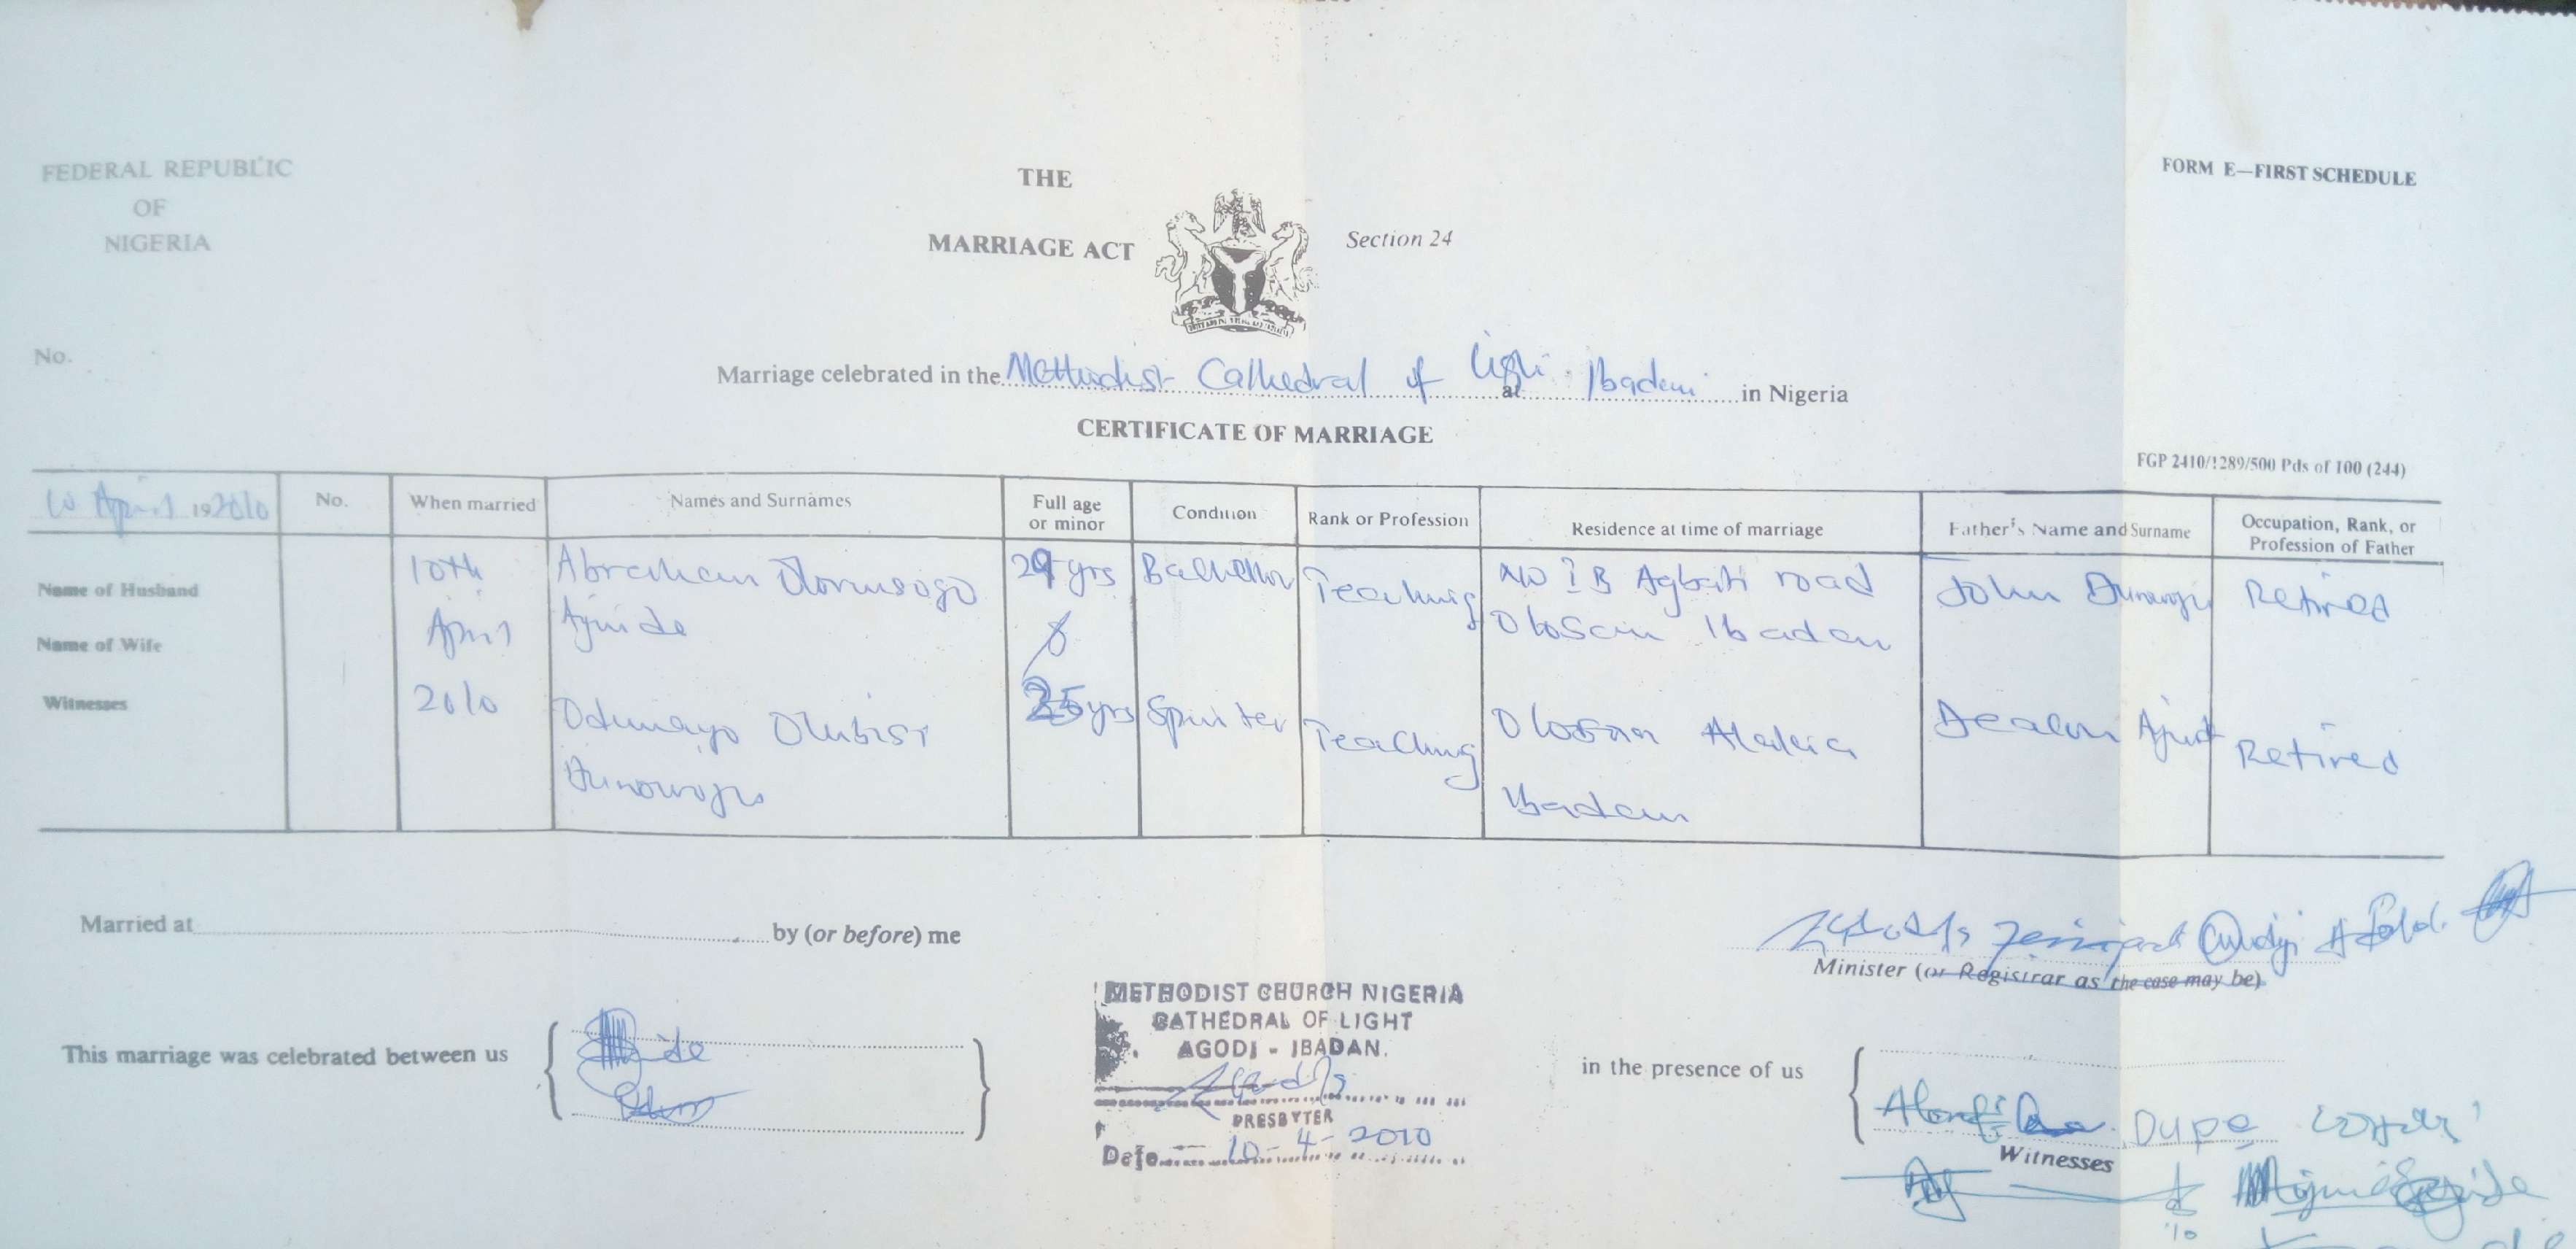 FEDERAL REPUBLIC
OF
NIGERIA
THE
MARRIAGE ACT
Section 24
FORM E—FIRST SCHEDULE
No.
Marriage celebrated in the Methodist Cathedral of Light at Ibadan in Nigeria
CERTIFICATE OF MARRIAGE
FGP 2410/1289/500 Pds of 100 (244)
10 April 19 2010
No.
When married
Names and Surnames
Full age
or minor
Condition
Rank or Profession
Residence at time of marriage
Father's Name and Surname
Occupation, Rank, or
Profession of Father
Name of Husband
Name of Wife
Witnesses
10th
April
2010
Abraham Olorunsogo
Ajuide
29 yrs
Bachelor
Teaching
Road
Olosan Ibadan
John
Retired
Odunayo Olubisi
25yrs
Spinster
Teaching
Olosan
Ibadan
Deacon
Retired
Married at
by (or before) me
Minister (or Registrar as the case may be)
This marriage was celebrated between us
METHODIST CHURCH NIGERIA
CATHEDRAL OF LIGHT
AGODI - IBADAN.
PRESBYTER
Date 10-4-2010
in the presence of us
Dupe
Witnesses